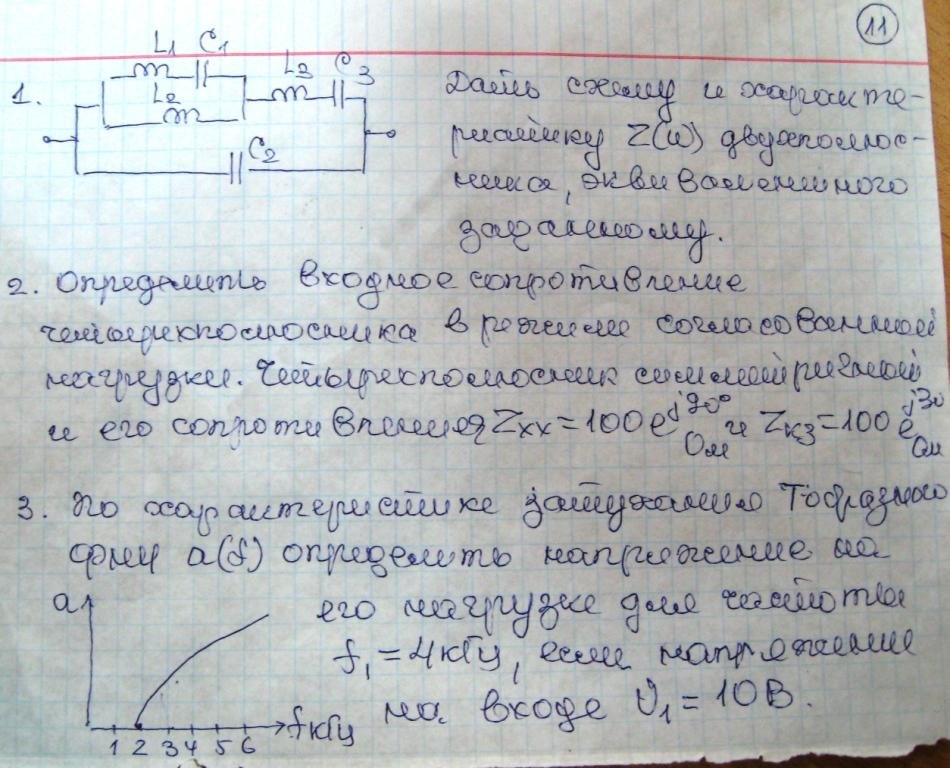 11
L1 C1
L3 C3
1. L2
C2
Дать схему и характе-
ристику Z(ω) двухполюс-
ника, эквивалентного
заданному.
2. Определить входное сопротивление
четырехполюсника в режиме согласованной
нагрузки. Четырехполюсник симметричный
и его сопротивления Zхх = 100 e^j90° Ом и Zкз = 100 e^j30 Ом
3. По характеристике затухания Т-образного
ФНЧ a(f) определить напряжение на
его нагрузке для частоты
f1 = 4кГц, если напряжение
на входе U1 = 10В.
a
f кГц
1 2 3 4 5 6